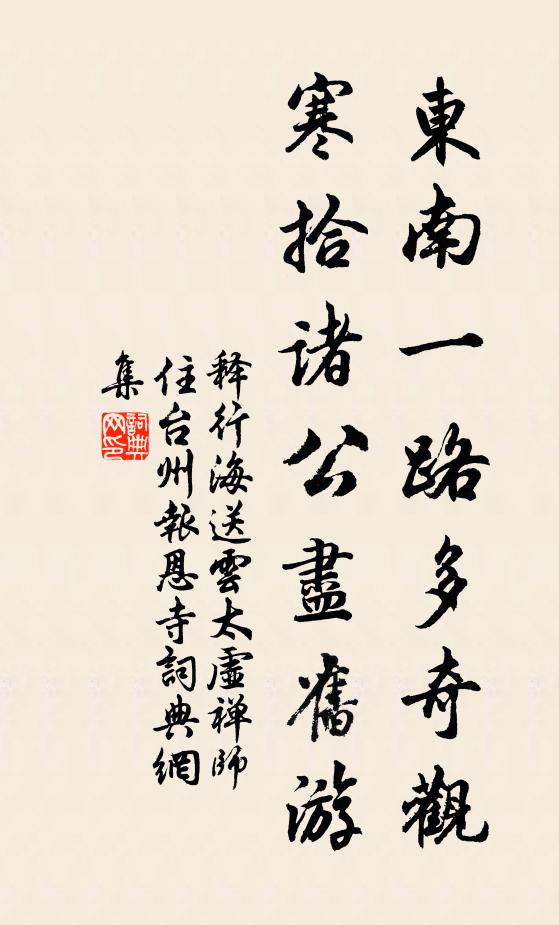 東南一路多奇觀
寒拾諸公盡舊游
释行海送雲太虛禅師
住台州報恩寺詞典網
集
詞典
网印